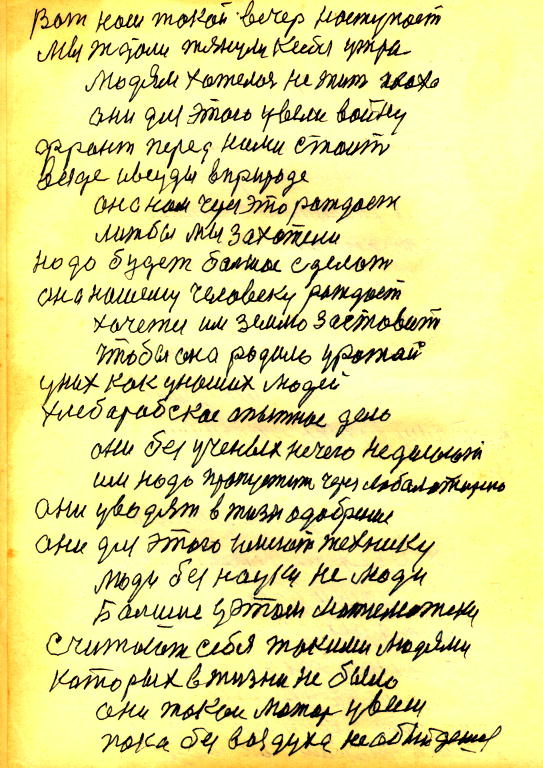 Вот нам такой вечер наступает
Мы ждали тянули к себе утра
людям хотелоя не жить плохо
они для этого увели войну
фронт перед ними стоит
везде и всуды в природе
она нам чуя это рождает
литбы мы захотели
надо будет балшое сделат
она нашему человеку рождает
хочети им землю заставит
чтобы она родила урожай
у них как у наших людей
хлебарабское опытное дело
они без ученых нечего неделают
им надо пропустит через лабалаторию
они уводят в жизн одобрение
они для этого имеют технику
люди без науки не люди
Балшие у этом математеки
Считают себя такими людями
которых в жизни не было
они такой матор увели
пока без воздуха не